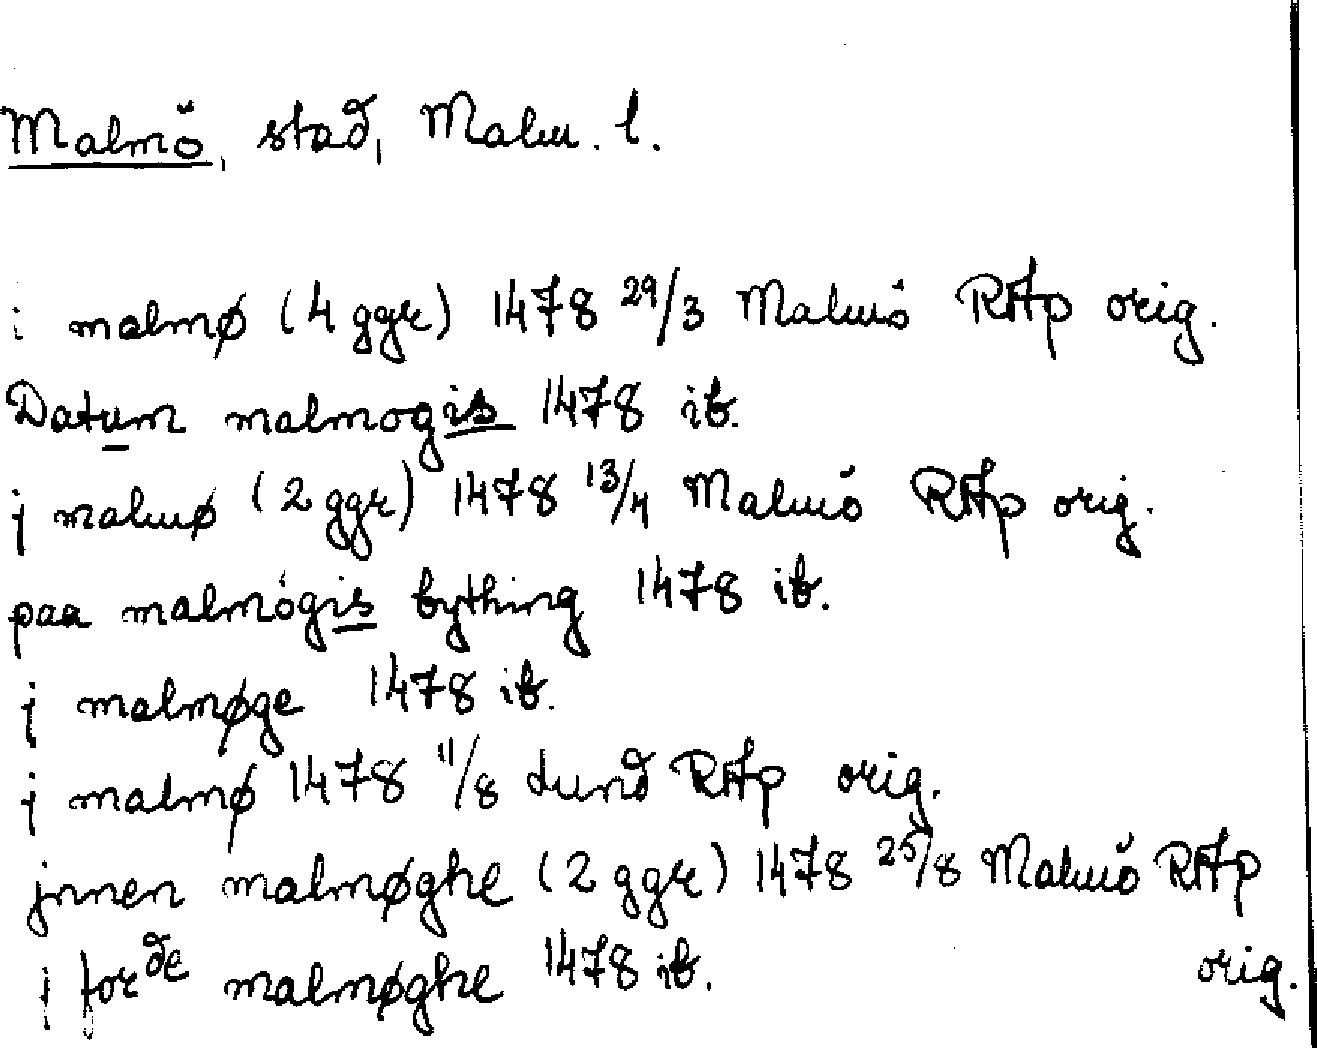 Malmö, stad, Malm. l.
i malmø (4 ggr) 1478 29/3 Malmö RAp orig.
Datum malmogis 1478 ib.
j malmø (2 ggr) 1478 13/4 Malmö RAp orig.
paa malmögis bything 1478 ib.
j malmøge 1478 ib.
j malmø 1478 11/8 Lund RAp orig.
jnnen malmøghe (2 ggr) 1478 25/8 Malmö RAp orig.
j forde malmøghe 1478 ib.